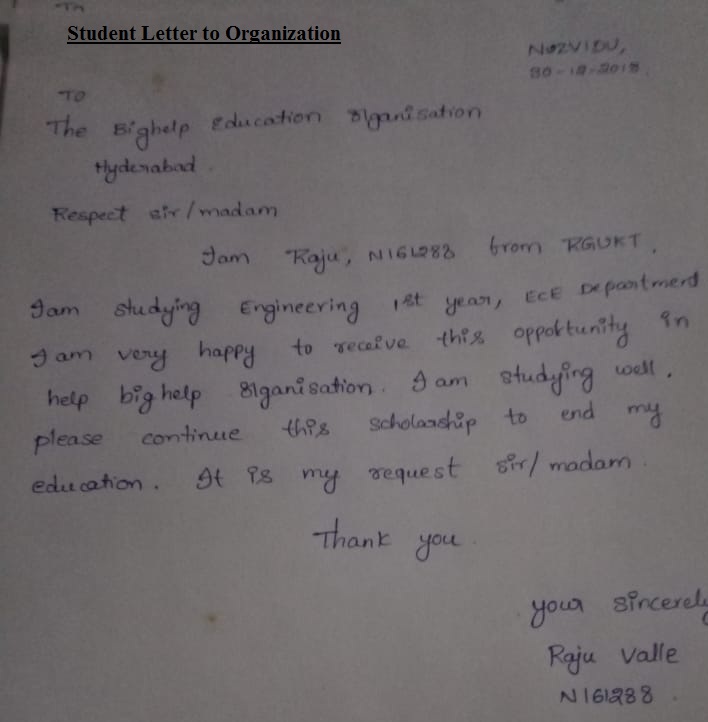 To
Student Letter to Organization
NUZVIDU,
30-12-2018.
TO
The Bighelp Education organisation
Hyderabad.
Respect sir/madam
Iam Raju, N161288 from RGUKT.
Iam studying Engineering 1st year, ECE Department
I am very happy to receive this opportunity in
help big help organisation. I am studying well.
please continue this scholarship to end my
education. It is my request sir/madam.
Thank you.
your sincerely
Raju Valle
N161288.